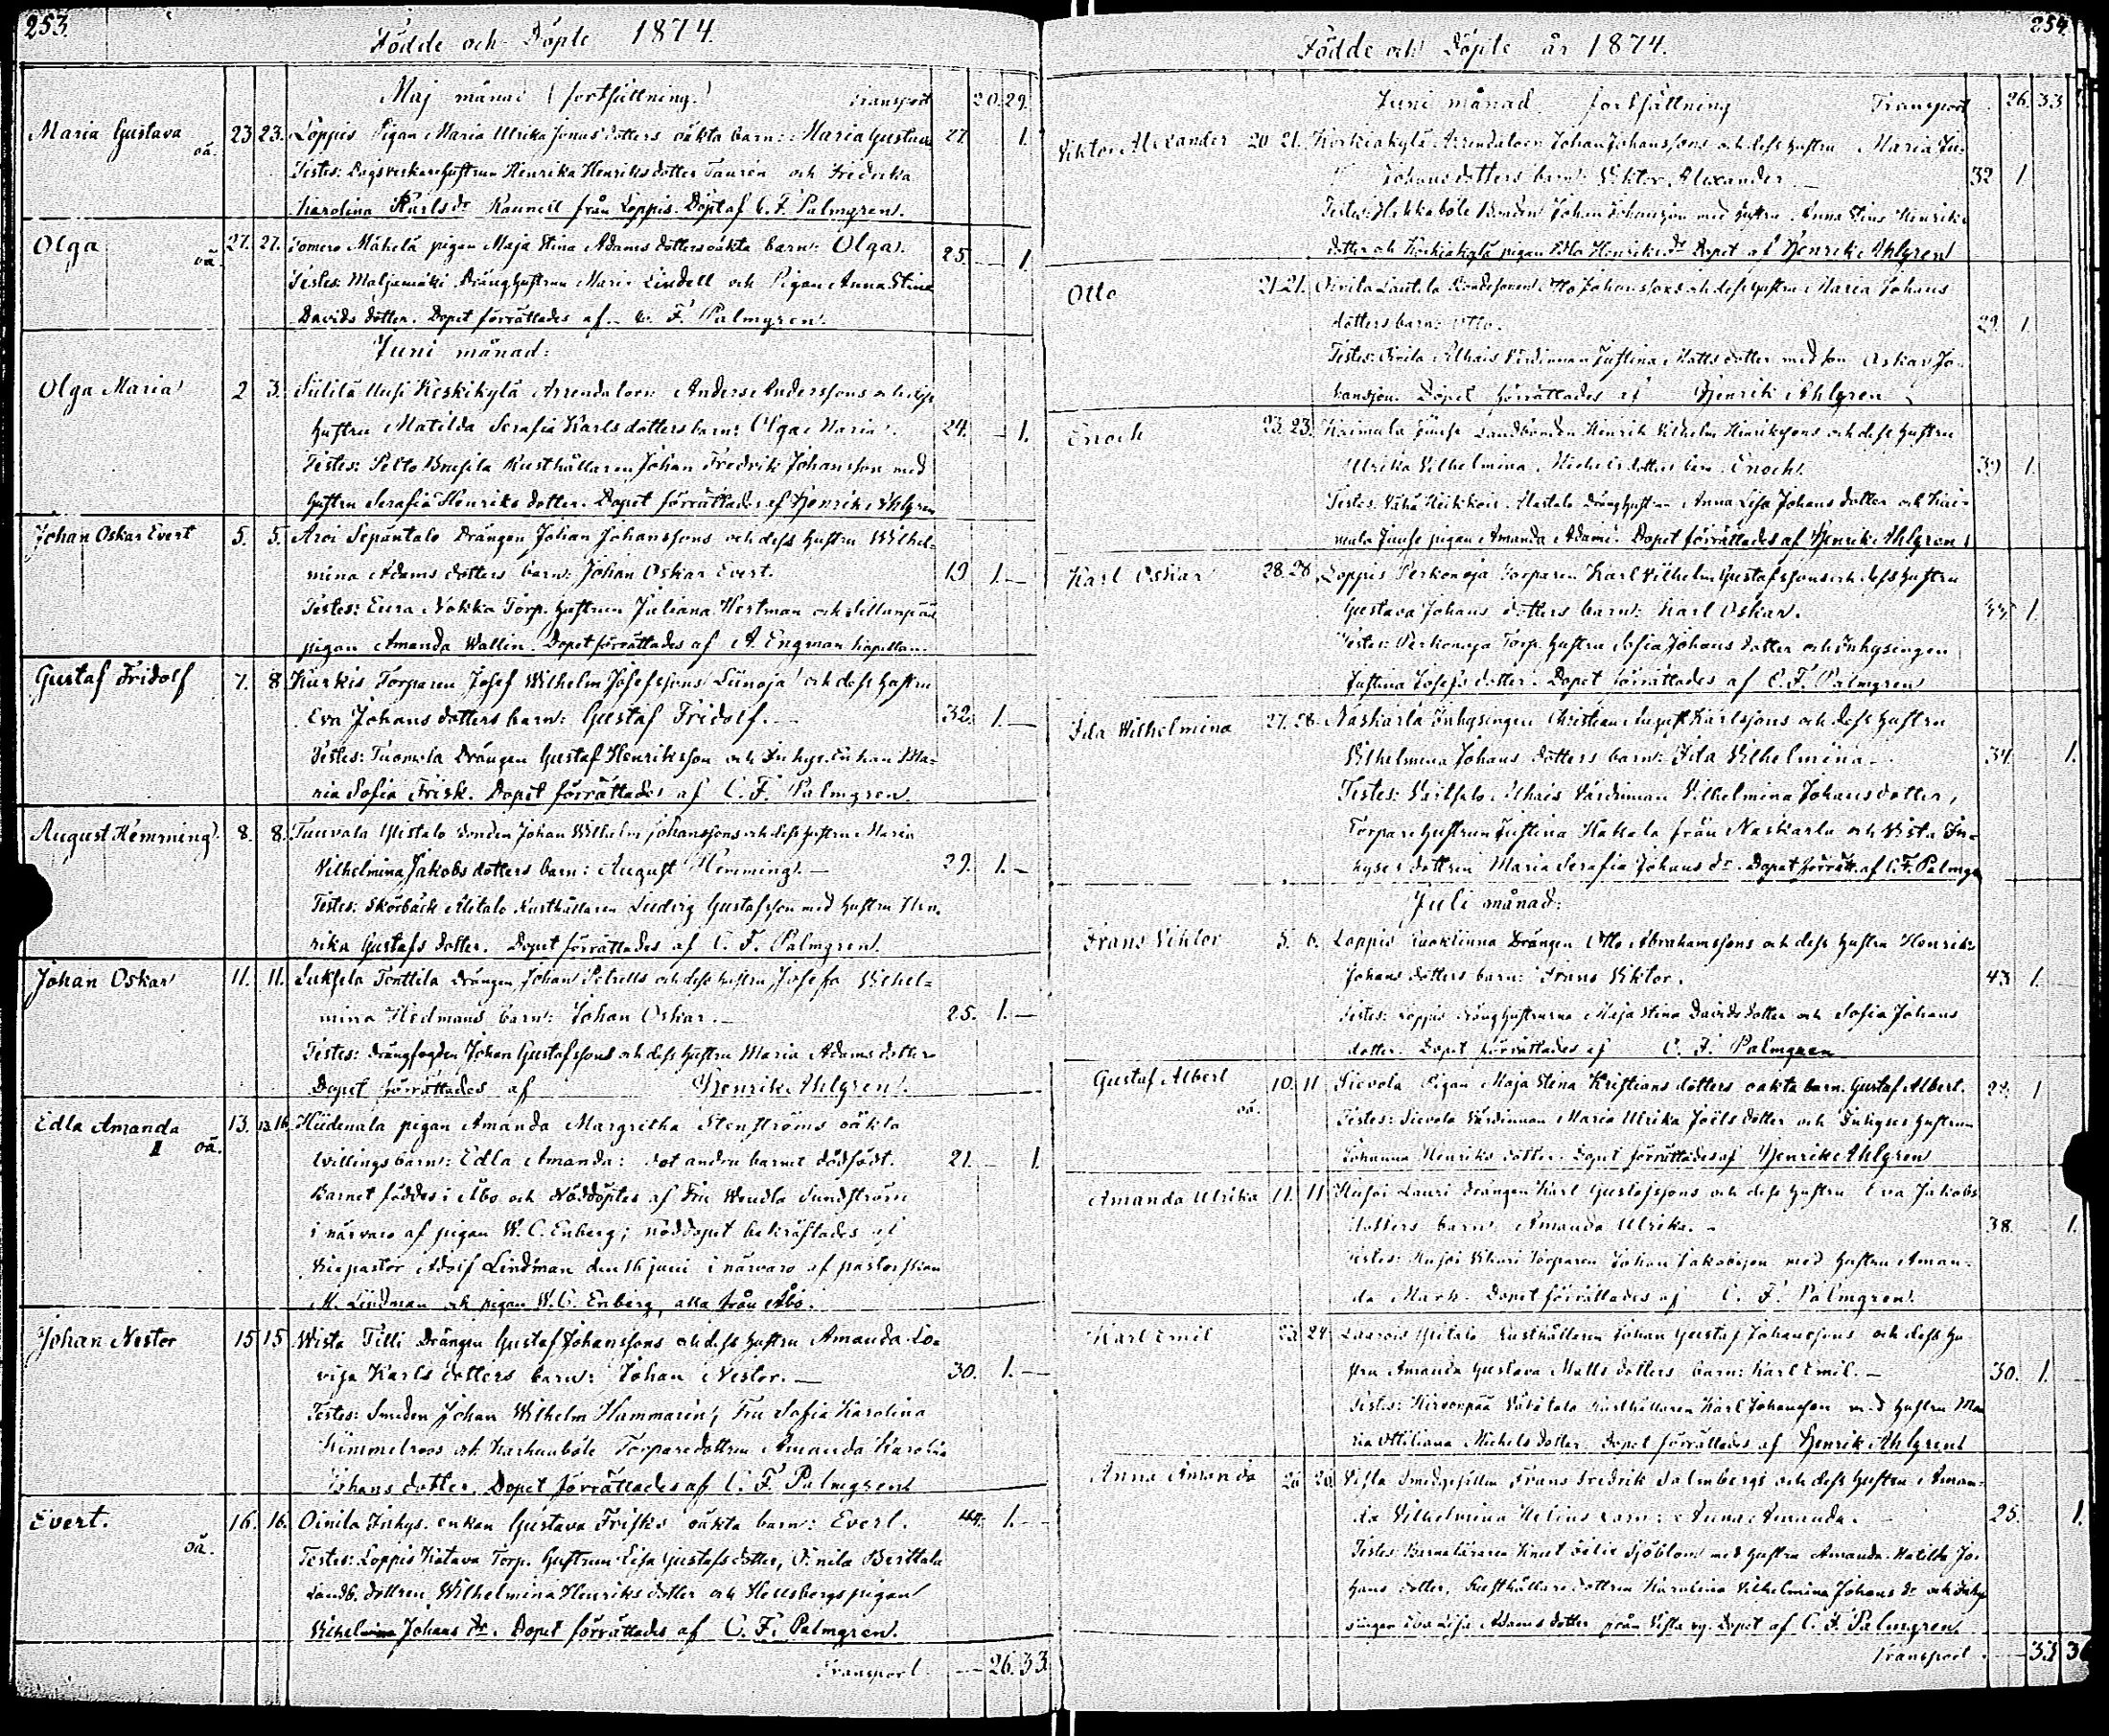 253.
Födde och Döpte 1874.
Maj månad (fortsättning.) Transport 20. 29.
Maria Gustava oä. 23 23. Loppis Pigan Maria Ulrika Jonas dotters oäkta barn: Maria Gustava 27. 1.
Testes: Henrika Henriksdotter Taurén och Fredrika
Karolina Karls dr från Loppis. Döpt af C. F. Palmgren.
Olga oä. 27. 27. Somero Mäkelä pigan Maja Stina Adams dotters oäkta barn: Olga. 25. 1.
Testes: Maljamäki Dränghustrun Maria Lindell och Pigan Anna Stina
Davids dotter. Dopet förrättades af C. F. Palmgren.
Juni månad:
Olga Maria 2 3. Keskikylä Anders Anderssons och dess
hustru Matilda Serafia Karls dotters barn: Olga Maria. 24. 1.
Testes: Pelto Rusthållaren Johan Fredrik Johansson med
hustru Serafia Henriks dotter. Dopet förrättades af Henrik Ahlgren
Johan Oskar Evert 5. 5. Aroi Sepäntalo Drängen Johan Johanssons och dess hustru Wilhel-
mina Adams dotters barn: Johan Oskar Evert. 19 1.
Testes: Eura Nokka Torp. hustrun Juliana Hertman och
pigan Amanda Wallin. Dopet förrättades af A Engman kapellan.
Gustaf Fridolf 7. 8 Kurkis Torparen Josef Wilhelm Josefssons och dess hustru
Eva Johans dotters barn: Gustaf Fridolf. 32. 1.
Testes: Tuomola Drängen Gustaf Henriksson och Inhys. Enkan Ma-
ria Sofia Frisk. Dopet förrättades af C. F. Palmgren.
August Hemming 8. 8. Tuuvala Ylistalo Bonden Johan Wilhelm Johanssons och dess hustru Maria
Vilhelmina Jakobs dotters barn: August Hemming. 29. 1.
Testes: Skörbäck Alitalo Rusthållaren Ludvig Gustafsson med hustru Hen-
rika Gustafs dotter. Dopet förrättades af C. F. Palmgren.
Johan Oskar 11. 11. Tonttila Drängen Johan och dess hustru Josefa Vilhel-
mina Hedmans barn: Johan Oskar. 25. 1.
Testes: Drängfogden Johan Gustafssons och dess hustru Maria Adams dotter
Dopet förrättades af Henrik Ahlgren.
Edla Amanda oä. 13. 13.16. Hiidenala pigan Amanda Margretha Stenströms oäkta
tvillingsbarn: Edla Amanda: det andra barnet dödfödt. 21. 1.
Barnet föddes i Åbo och Nöddöptes af Fru Wendla Sundström
i närvaro af pigan W. C. Enberg; nöddopet bekräftades af
Vicepastor Adolf Lindman den 16 juni i närvaro af pastorskan
M. Lindman och pigan W. C. Enberg, alla från Åbo.
Johan Nestor 15 15 Wista Tilli Drängen Gustaf Johanssons och dess hustru Amanda Lo-
visa Karls dotters barn: Johan Nestor. 30. 1.
Testes: Smeden Johan Wilhelm Hammarén, Fru Sofia Karolina
Himmelroos och Karhunböle Torparedottren Amanda Karolina
Johans dotter. Dopet förrättades af C. F. Palmgren
Evert. oä. 16. 16. Oinila Inhys. enkan Gustava Frisks oäkta barn: Evert. 44. 1.
Testes: Loppis Katava Torp. Hustrun Lisa Gustafsdotter, Oinila Brittala
Landb. dottren Wilhelmina Henriks dotter och Hellsbergs pigan
Vilhelmina Johans dr. Dopet förrättades af C. F. Palmgren.
Transport 26. 33.
254.
Födde och Döpte år 1874.
Juni månad fortsättning Transport 26. 33
Viktor Alexander 20 21. Korkiakylä Johan Johanssons och dess hustru Maria
Johans dotters barn: Viktor Alexander 32 1
Testes: Hekkaböle Bonden Johan Johansson med hustru Anna Stina Henriks
dotter och Korkiakylä pigan Edla Henriks dr Dopet af Henrik Ahlgren
Otto 21. 21. Oinila Lautela Bondesonen Otto Johanssons och dess hustru Maria Johans
dotters barn: Otto. 29. 1.
Testes: Oinila Alhais Värdinnan Justina Matts dotter med son Oskar Jo-
hansson. Dopet förrättades af Henrik Ahlgren
Enoch 23. 23. Raimula Landbonden Henrik Vilhelm Henrikssons och dess hustru
Ulrika Vilhelmina Michels dotters barn: Enoch. 39 1.
Testes: Vähä Heikkois Alastalo Dränghustrun Anna Lisa Johans dotter och
pigan Amanda Adami. Dopet förrättades af Henrik Ahlgren
Karl Oskar 28. 28 Loppis Perkonoja Torparen Karl Vilhelm Gustafssons och dess hustru
Gustava Johans dotters barn: Karl Oskar. 1.
Testes: Perkonoja Torp. hustru Sofia Johans dotter och Inhysingen
Justina Josefs dotter. Dopet förrättades af C. F. Palmgren
Ida Wilhelmina 27. 28. Naskarla Inhysingen Christian August Karlssons och dess hustru
Vilhelmina Johans dotters barn: Ida Vilhelmina. 34 1.
Testes: Alhais Värdinnan Vilhelmina Johansdotter,
Torpare hustrun Justina Hakala från Naskarla och Vista In-
hyses dottren Maria Serafia Johans dr. Dopet förrätt. af C. F. Palmgren
Juli månad:
Frans Viktor 5. 6. Loppis Drängen Otto Abrahamssons och dess hustru Henrika
Johans dotters barn: Frans Viktor. 43 1.
Testes: Loppis dränghustrurna Maja Stina Davidsdotter och Sofia Johans
dotter. Dopet förrättades af C. F. Palmgren
Gustaf Albert oä. 10. 11 Sievola Pigan Maja Stina Kristians dotters oäkta barn: Gustaf Albert. 1
Testes: Sievola Värdinnan Maria Ulrika Joels dotter och Inhyses hustrun
Johanna Henriks dotter. Dopet förrättades af Henrik Ahlgren
Amanda Ulrika 11. 11 Lauri drängen Karl Gustafssons och dess hustru Eva Jakobs
dotters barn: Amanda Ulrika. 38. 1.
Testes: Torparen Johan Jakobsson med hustru Aman-
da Mark. Dopet förrättades af C. F. Palmgren.
Karl Emil 23. 24 Ylitalo Rusthållaren Johan Gustaf Johanssons och dess hu-
stru Amanda Gustava Matts dotters barn: Karl Emil. 30. 1.
Testes: Hirvonpää Rusthållaren Karl Johansson med hustru Ma-
ria Ottiliana Michels dotter. Dopet förrättades af Henrik Ahlgren
Anna Amanda 26 26 Vista Smedgesällen Frans Fredrik Salmbergs och dess hustru Aman-
da Vilhelmina Helins barn: Anna Amanda. 25. 1.
Testes: Barnaläraren Knut Sjöblom med hustru Amanda Matilda Jo-
hans dotter, Rusthållare dottren Karolina Vilhelmina Johans dr och Inhy-
singen Eva Lisa Adams dotter från Vista by. Dopet af C. F. Palmgren
Transport 33 36